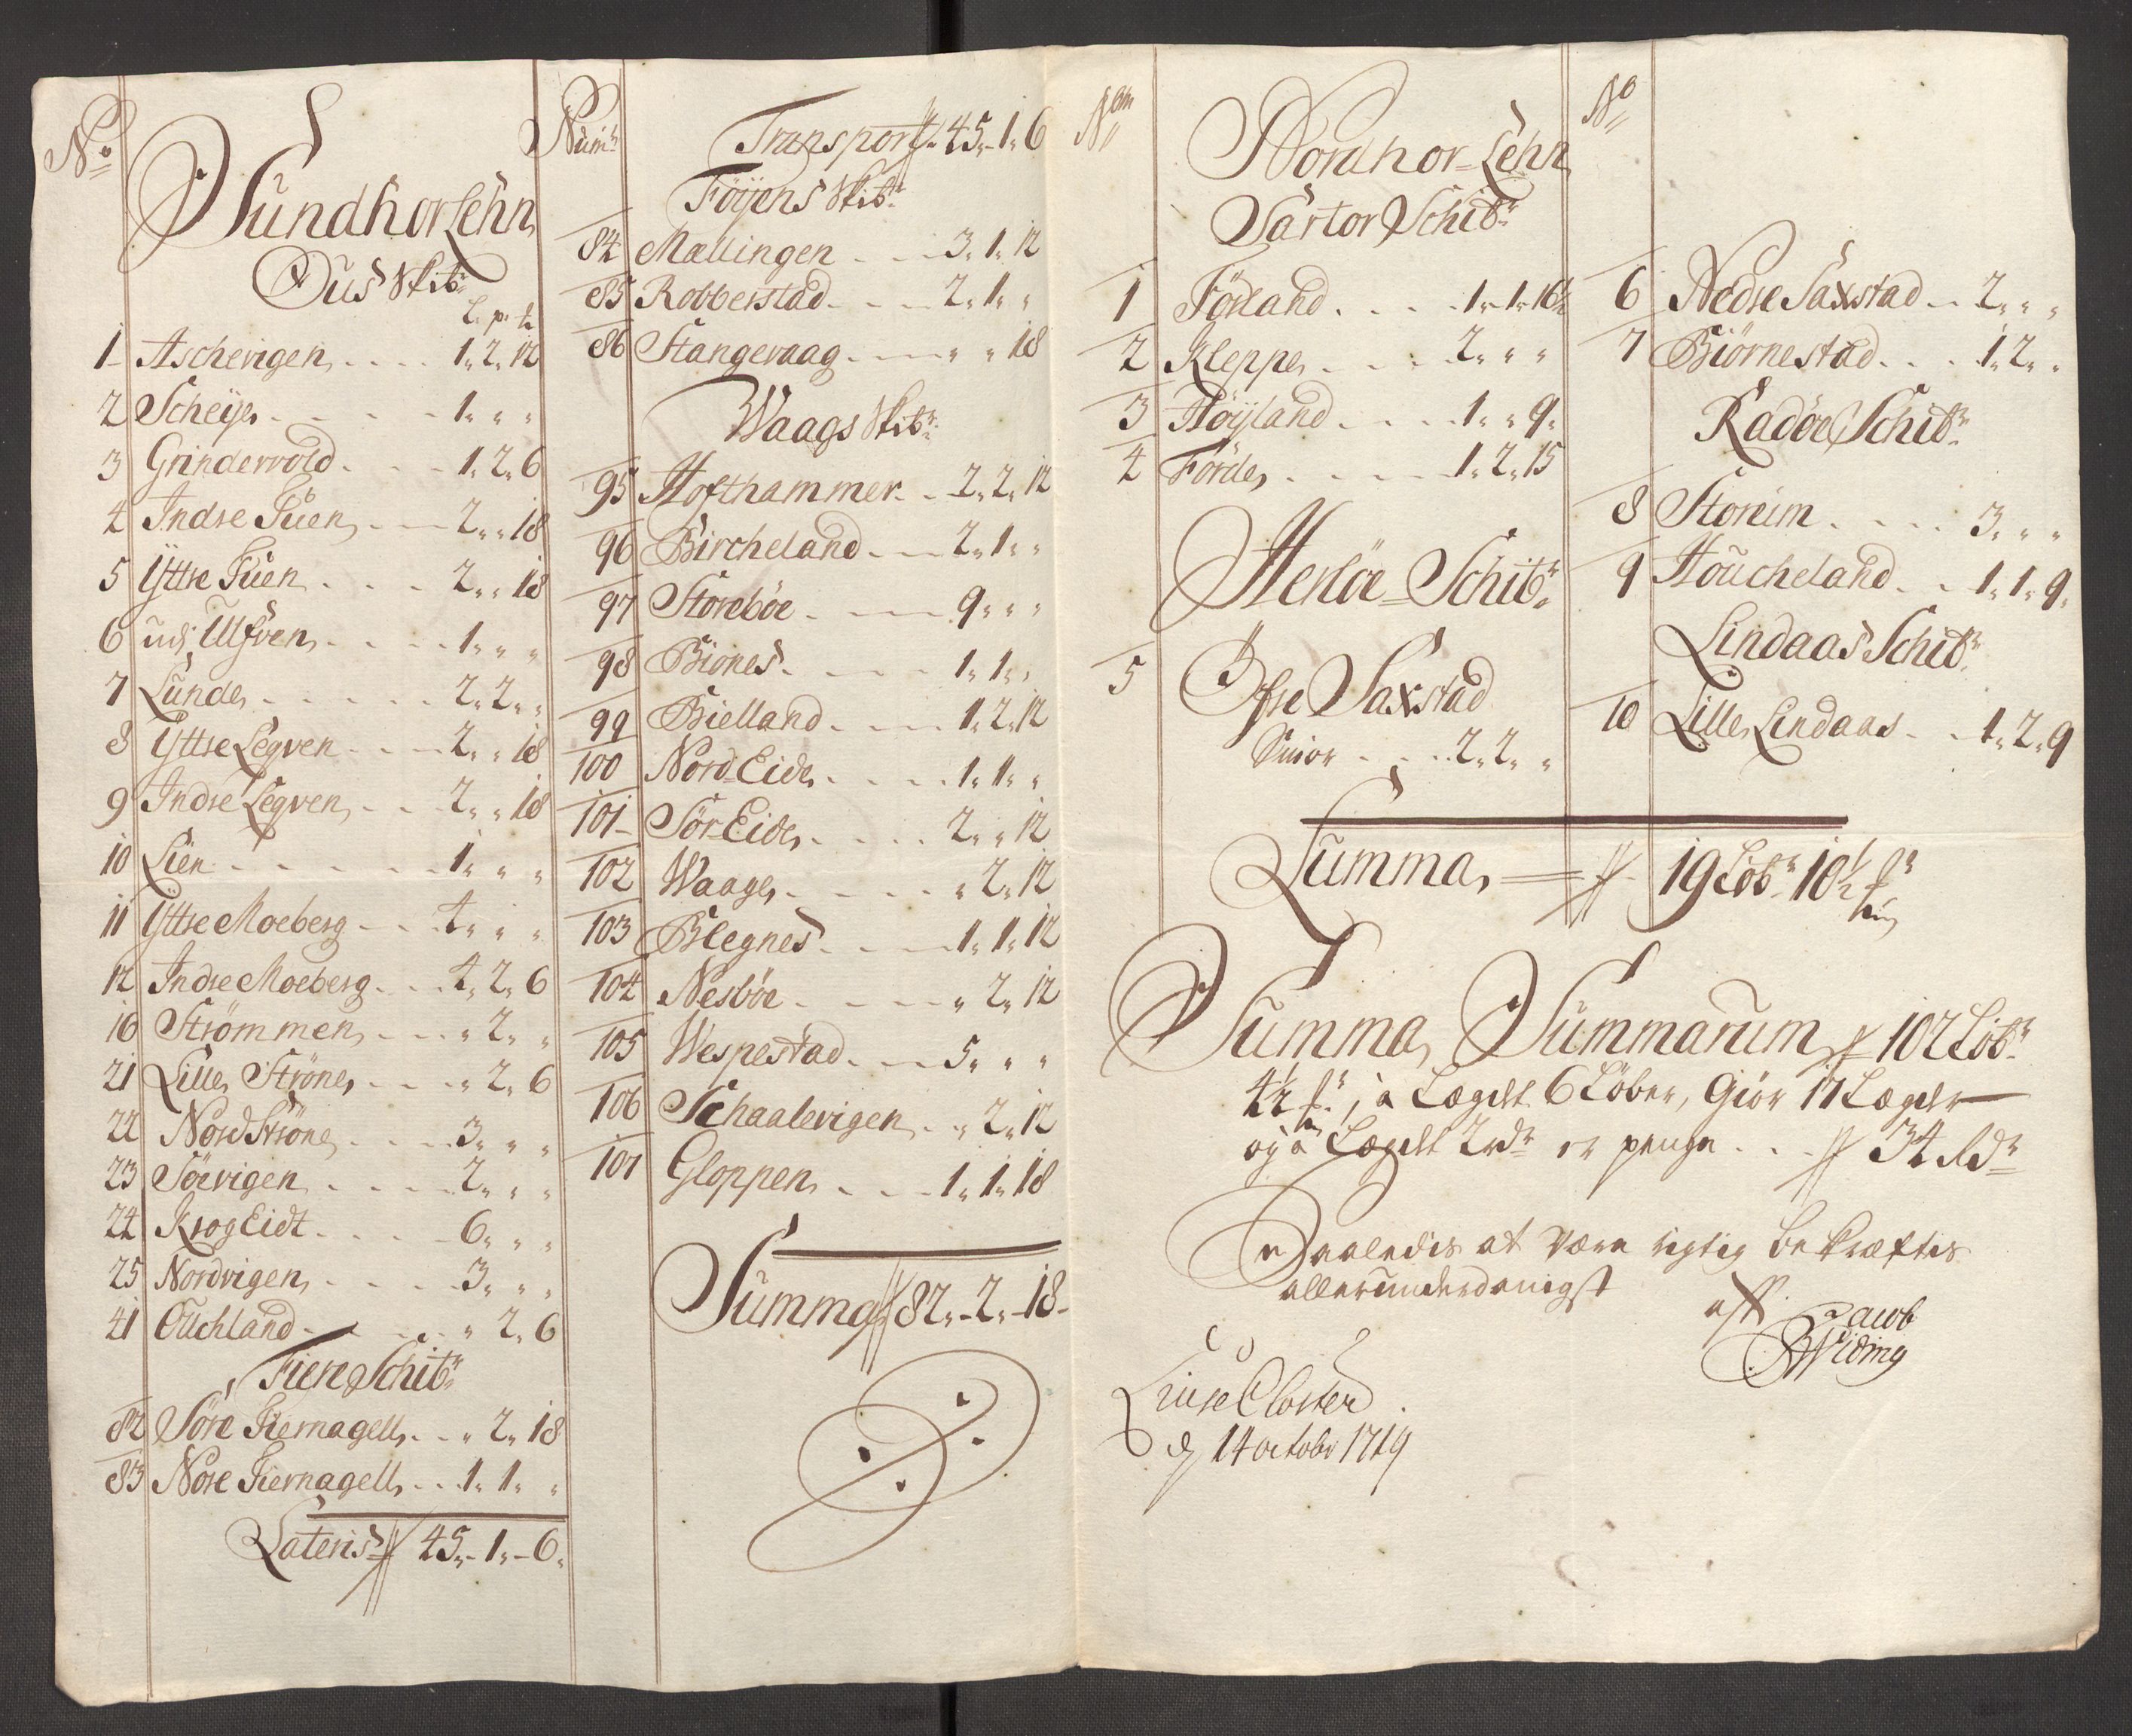 No
Sundhorlehn
Øus Skibr
L. p. ℔
1 Ascherigen .... 1„ 2„ 12
2 Scheije .... 1„ „ „
3 Grindervold .... 1„ 2„ 6
4 Indre Tuen .... 2„ „ 18
5 Ÿttre Tuen .... 2„ „ 18
6 udj Ulfven .... 1„ „ „
7 Lunde .... 2„ 2„ „
8 Ÿttre Legven .... 2„ „ 18
9 Indre Legven .... 2„ „ 18
10 Lien .... 1„ „ „
11 Ÿttre Moeberg .... 4„ „ „
12 Indre Moeberg .... 4„ 2„ 6
16 Strömmen .... „ 2„ „
21 Lille Ströne .... „ 2„ 6
22 Nord Ströne .... 3„ „ „
23 Söevigen .... 2„ „ „
24 Krog Eidt .... 6„ „ „
25 Nordvigen .... 3„ „ „
41 Ouchland .... „ 2„ 6
Fiere Schibr
82 Söre Fiernagell .. „ 2„ 18
83 Nore Fiernagell .. 1„ 1„ „
Lateris 45„-1„-6„
Numr
Transport 45„-1„ 6
Föÿens Skibr
84 Mællingen ... 3„ 1„ 12
85 Robberstad ... 2„ 1„ „
86 Stangevaag ... „ „ 18
Waags Skibr
95 Hofthammer .. 2„ 2„ 12
96 Bircheland ... 2„ 1„ „
97 Storeböe ... 9„ „ „
98 Biones ... 1„ 1„ „
99 Bielland ... 1„ 2„ 12
100 Nord Eide .... 1„ 1„ „
101 Sör Eide .... 2„ „ 12
102 Waage .... „ 2„ 12
103 Blegnes ... 1„ 1„ 12
104 Nesböe ... „ 2„ 12
105 Wespestad ... 5„ „ „
106 Schaalevigen .. „ 2„ 12
107 Gloppen ... 1„ 1„ 18
Summa 82„-2„-18-
Nom
Nordhor-Lehn
Sartor Schibr
1 Förland .... 1„ 1„ 16½
2 Kleppe ... 2„ „ „
3 Höÿland .... 1„ „ 9„
4 Förde .... 1„ 2„ 15
Herlöe-Schibr
5 Øfre Saxstad
.... 2„ 2„ „
No
6 Nedre Saxstad .. 2„ „ „
7 Biörnestad ... 1„ 2„ „
Radöe Schibr
8 Storeim .... 3„ „ „
9 Houcheland .. 1„ 1„ 9„
Lindaas Schibr
10 Lille Lindaas .. 1„ 2„ 9
Summa = 19 Löbr 10½
Summa Summarum 102 Löbr
4½, à Lægdt 6 Löber, Giör 17 Lægder
og à Lægdt 2 rdr er penge ... 34 Rdr
Saaledis at være rigtig bekræftis
allerunderdanigst
aff
Jacob
Widing
Liuse Closter
d 14 octobr 1719